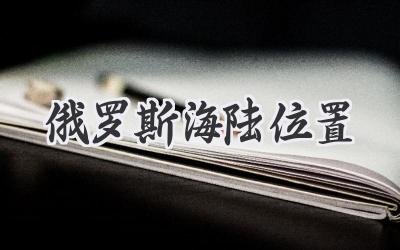 俄罗斯海陆位置